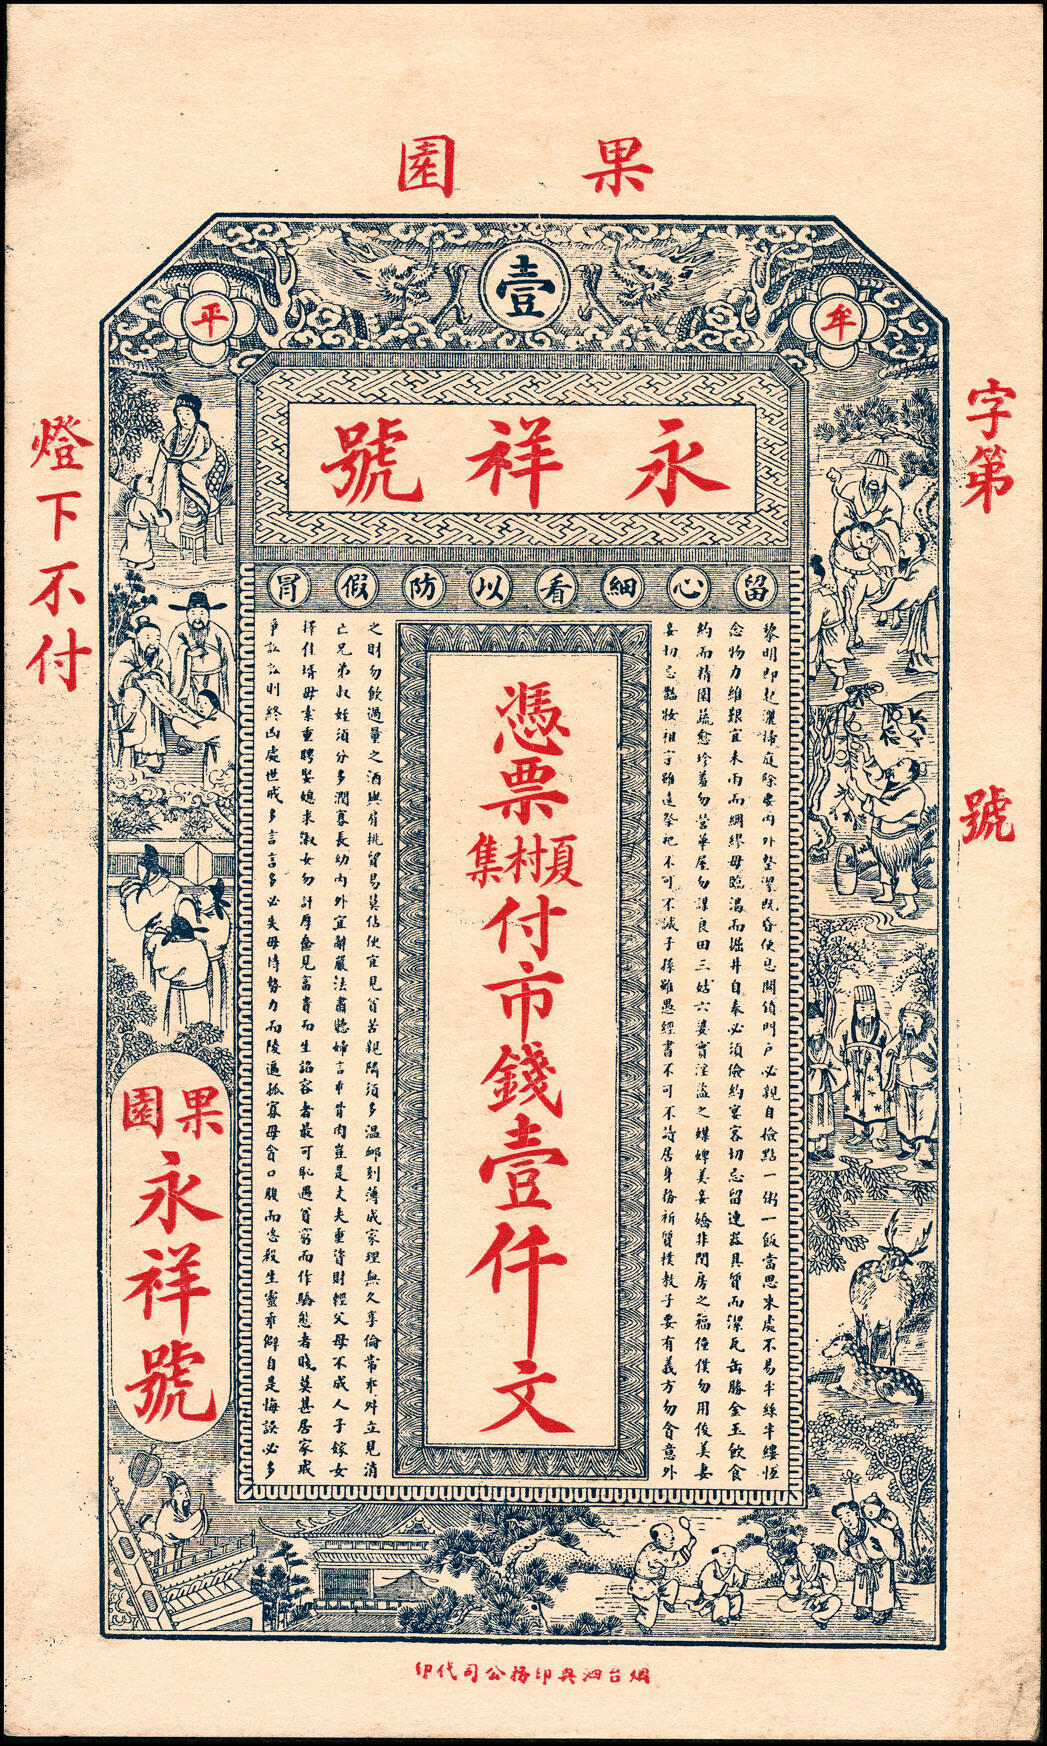 果園
壹
牟平
永祥號
留心細看以防假冒
字第
號
黎明即起灑掃庭除要內外整潔既昏便息關鎖門戶必親自檢點一粥一飯當思來處不易半絲半縷恆
念物力維艱宜未雨而綢繆毋臨渴而掘井自奉必須儉約宴客切忌留連器具質而潔瓦缶勝金玉飲食
約而精園蔬愈珍羞勿營華屋勿謀良田三姑六婆實淫盜之媒婢美妾嬌非閨房之福僮僕勿用俊美妻
妾切忌豔妝祖宗雖遠祭祀不可不誠子孫雖愚經書不可不讀居身務祈質樸教子要有義方勿貪意外
憑票
夏村集
付市錢壹仟文
之財勿飲過量之酒與肩挑貿易莫佔便宜見貧苦親隣須多溫卹刻薄成家理無久享倫常乖舛立見消
亡兄弟叔姪須分多潤寡長幼內外宜辭嚴法肅聽婦言乖骨肉豈是丈夫重資財輕父母不成人子嫁女
擇佳壻毋索重聘娶媳求淑女勿計厚奩見富貴而生諂容者最可恥遇貧窮而作驕態者賤莫甚居家戒
爭訟訟則終凶處世戒多言言多必失毋恃勢力而陵逼孤寡毋貪口腹而恣殺生靈乖僻自是悔誤必多
果園
永祥號
燈下不付
烟台泗興印務公司代印